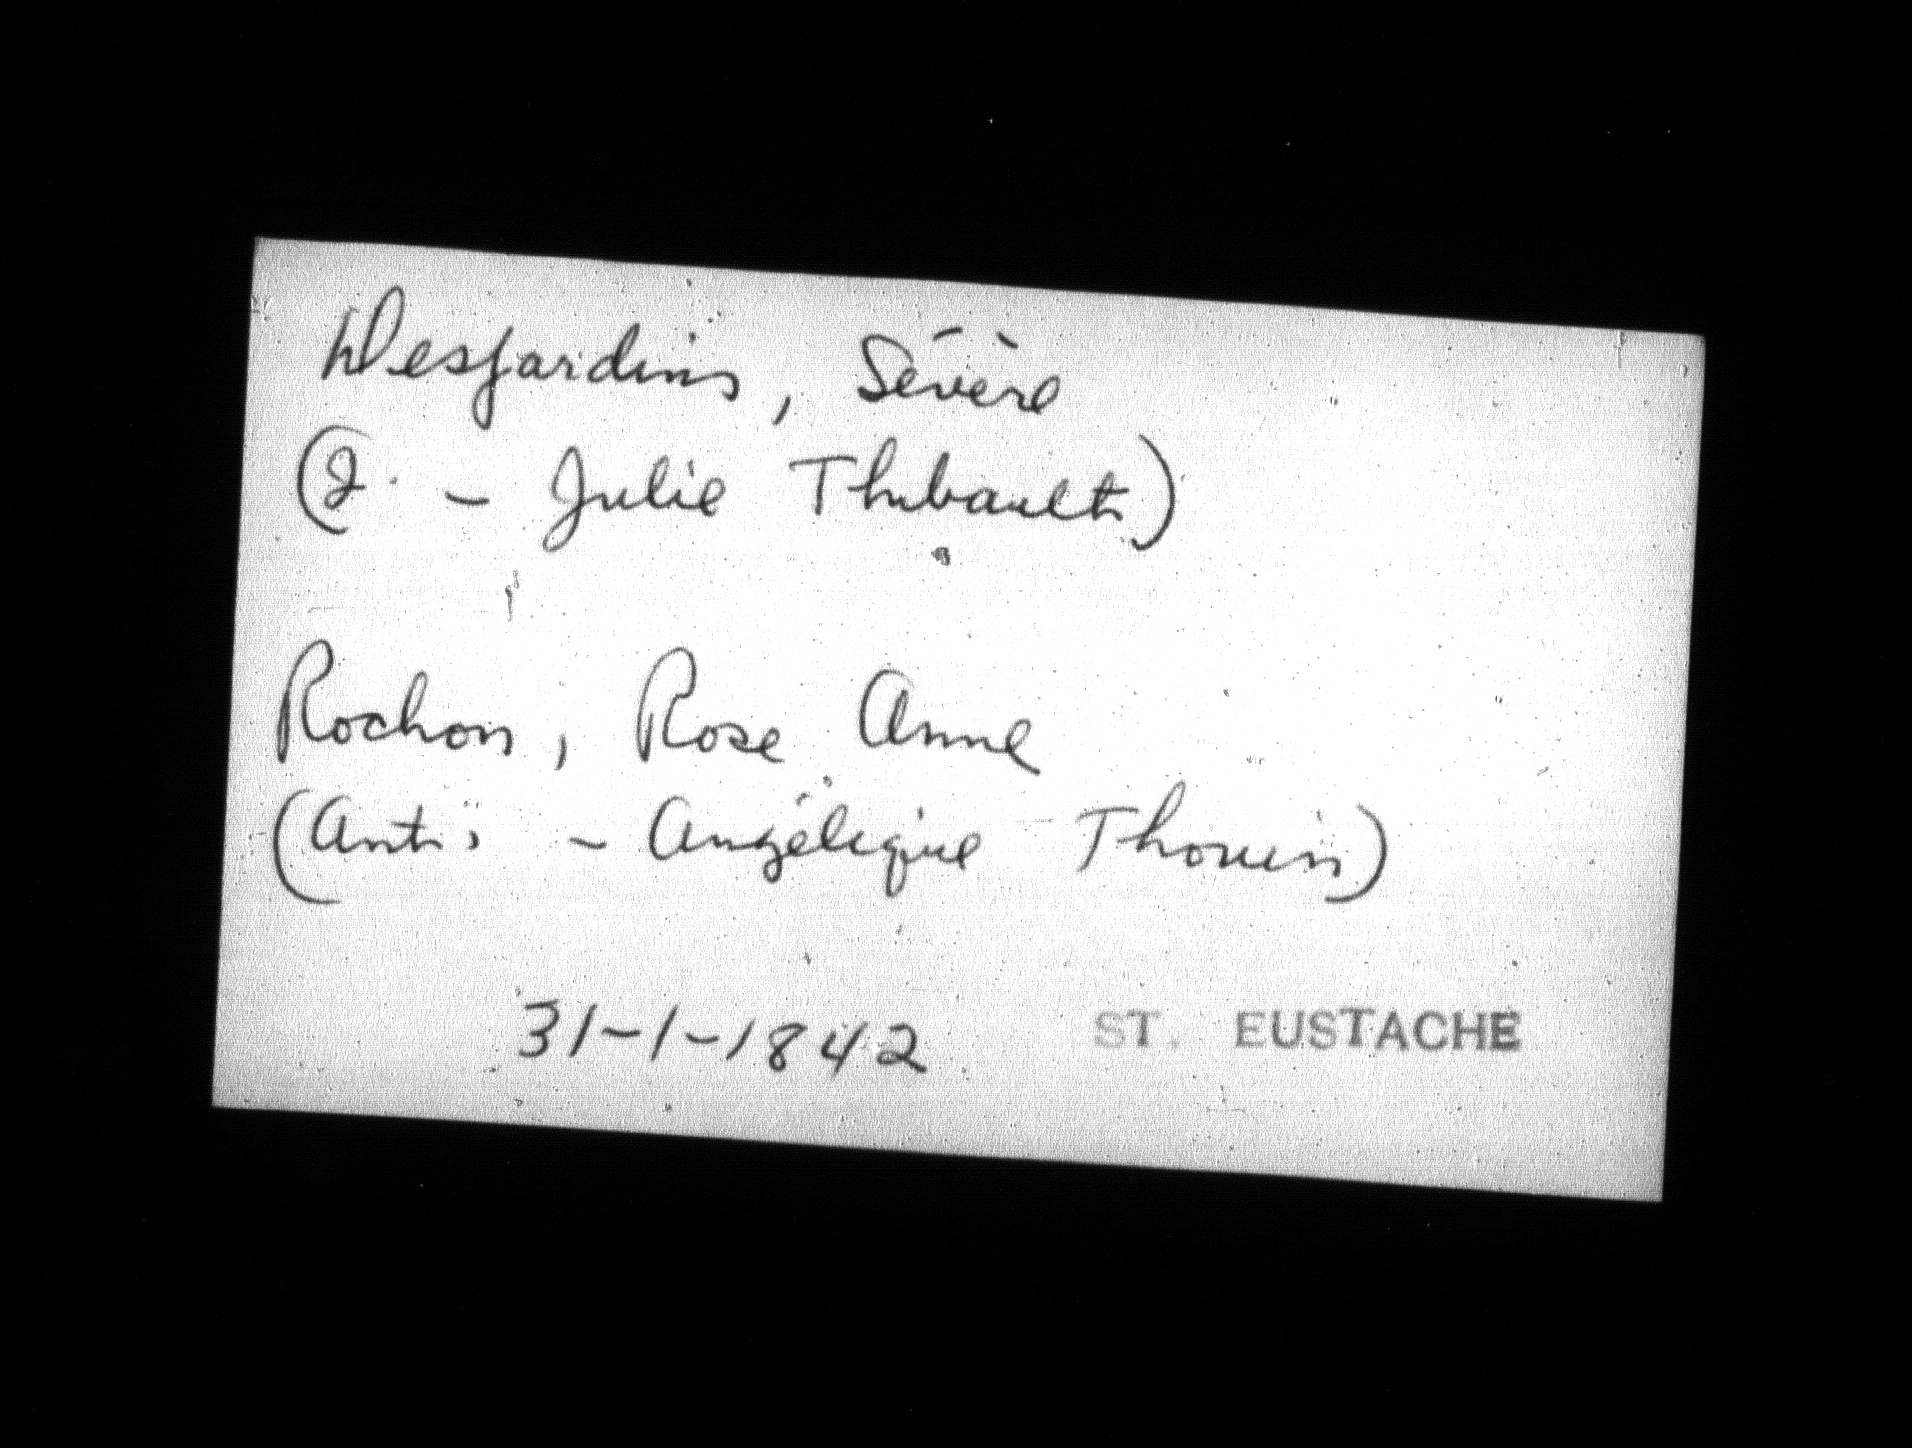 Desjardins, Sévère
(J. - Julie Thibault)
Rochon, Rose Anne
(Ant. - Angélique Thouin)
31-1-1842 ST. EUSTACHE